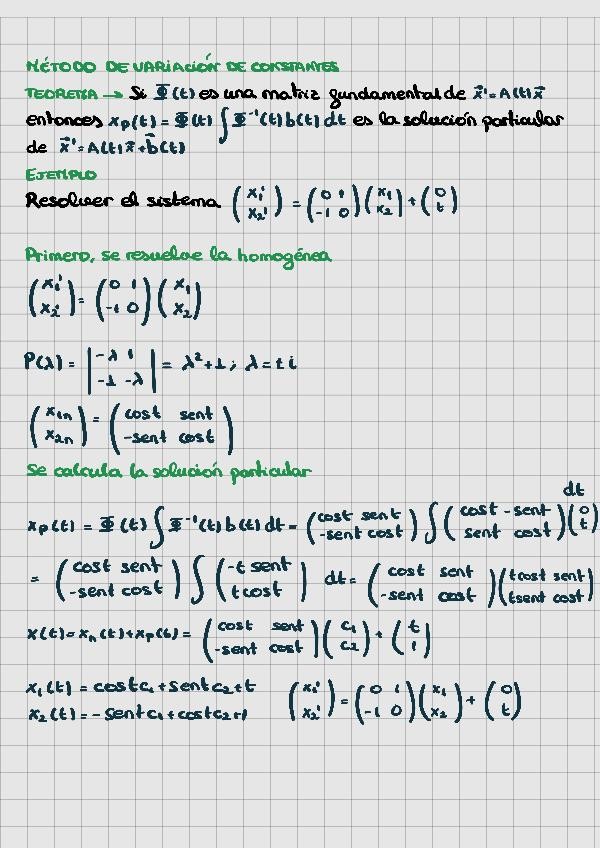 MÉTODO DE VARIACIÓN DE CONSTANTES
TEOREMA → Si Φ(t) es una matriz fundamental de x⃗' = A(t)x⃗
entonces xp(t) = Φ(t) ∫ Φ⁻¹(t) b(t) dt es la solución particular
de x⃗' = A(t)x⃗ + b⃗(t)
EJEMPLO
Resolver el sistema (x₁' ; x₂') = (0 1 ; -1 0)(x₁ ; x₂) + (0 ; t)
Primero, se resuelve la homogénea
(x₁' ; x₂') = (0 1 ; -1 0)(x₁ ; x₂)
P(λ) = |-λ 1 ; -1 -λ| = λ²+1; λ = ± i
(x₁n ; x₂n) = (cost sent ; -sent cost)
Se calcula la solución particular
xp(t) = Φ(t) ∫ Φ⁻¹(t) b(t) dt = (cost sent ; -sent cost) ∫ (cost -sent ; sent cost)(0 ; t) dt
= (cost sent ; -sent cost) ∫ (-t sent ; t cost) dt = (cost sent ; -sent cost)(tcost sent ; tsent cost)
x(t) = xn(t) + xp(t) = (cost sent ; -sent cost)(c₁ ; c₂) + (t ; 1)
x₁(t) = costc₁ + sentc₂ + t (x₁' ; x₂') = (0 1 ; -1 0)(x₁ ; x₂) + (0 ; t)
x₂(t) = -sentc₁ + costc₂+1